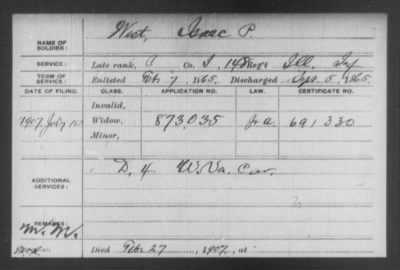 NAME OF SOLDIER: West, Isaac P.
SERVICE: Late rank, P Co. I, 148 Reg't Ill. Inf
TERM OF SERVICE: Enlisted Feb 7, 1865. Discharged Sept. 5, 1865.
DATE OF FILING. CLASS. APPLICATION NO. LAW. CERTIFICATE NO.
Invalid,
1907 July Widow, 873,035 691330
Minor,
ADDITIONAL SERVICES: D. 4 W.Va. Cav.
REMARKS:
M.M.
Died Feb. 27, 1907, at